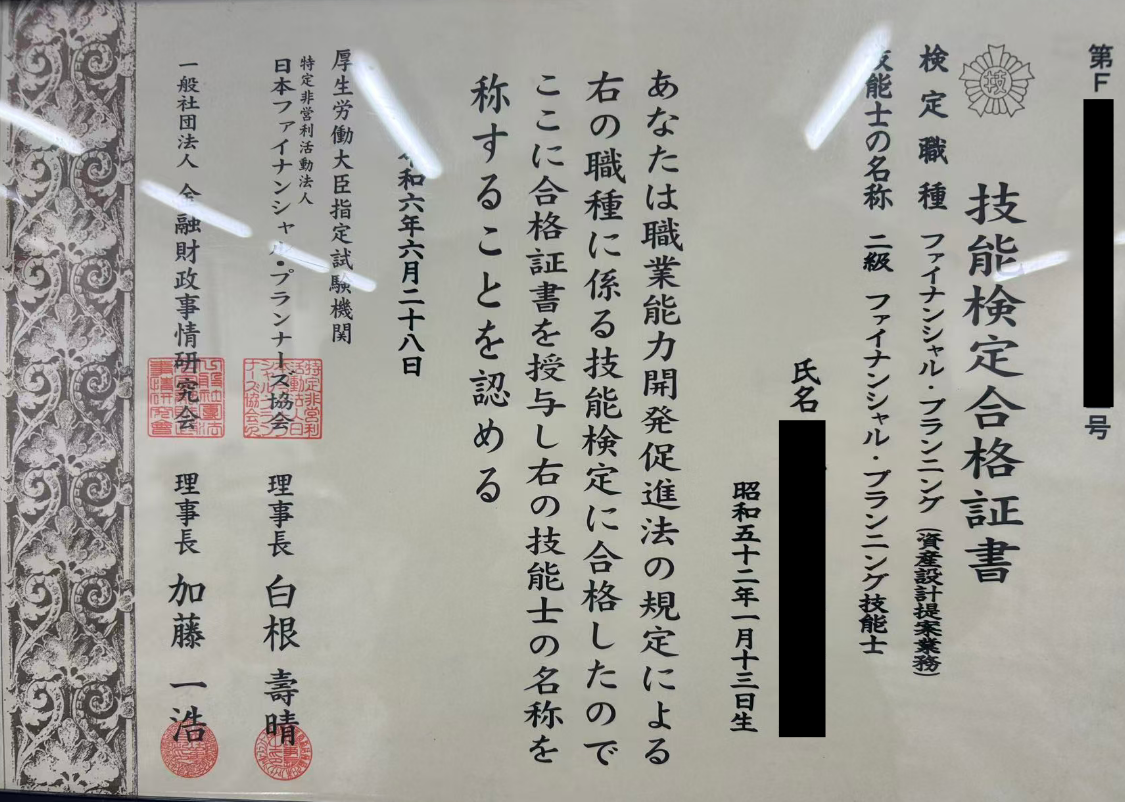 第F
号
技
技能検定合格証書
検定職種 ファイナンシャル・プランニング(資産設計提案業務)
技能士の名称 二級 ファイナンシャル・プランニング技能士
氏名
昭和五十二年一月十三日生
あなたは職業能力開発促進法の規定による
右の職種に係る技能検定に合格したので
ここに合格証書を授与し右の技能士の名称を
称することを認める
令和六年六月二十八日
厚生労働大臣指定試験機関
特定非営利活動法人
日本ファイナンシャル・プランナーズ協会 理事長 白根 壽晴
一般社団法人 金融財政事情研究会 理事長 加藤 一浩